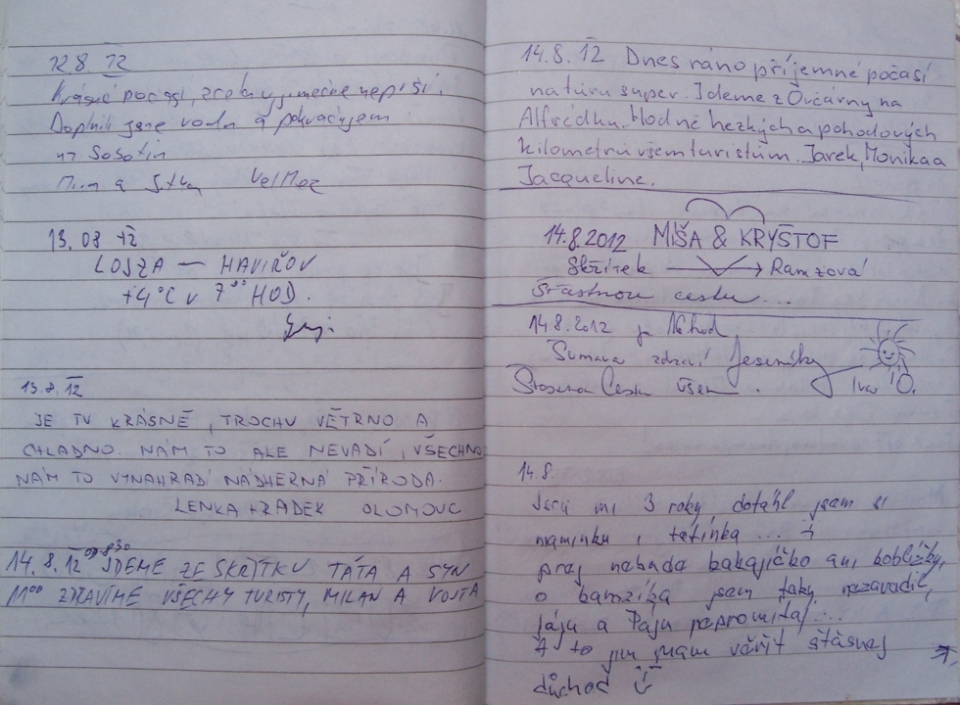 12.8. 12
Krásné počasí, zreku výjimečně neprší.
Doplnili jsme vodu a pokračujem
na Sobotín
a Jitka Velmez
13. 08 12
LOJZA — HAVÍŘOV
+4°C v 7⁰⁰ HOD.
13.8. 12
JE TU KRÁSNĚ, TROCHU VĚTRNO A
CHLADNO. NÁM TO ALE NEVADÍ, VŠECHNO
NÁM TO VYNAHRADÍ NÁDHERNÁ PŘÍRODA.
LENKA + RADEK OLOMOUC
14.8.12 OD 8³⁰ JDEME ZE SKŘÍTKU TÁTA A SYN
11⁰⁰ ZDRAVÍME VŠECHY TURISTY, MILAN A VOJTA
14.8. 12 Dnes ráno příjemné počasí
na túru super. Jdeme z Ovčárny na
Alfrédku. Hodně hezkých a pohodových
kilometrů všem turistům. Jarek, Monika a
Jacqueline.
14.8.2012 MÍŠA & KRYŠTOF
Skřítek → Ramzová
šťastnou cestu...
14.8.2012 Náhod
Šumava zdraví Jeseníky
Šťastnou Cestu všem. Iva O.
14.8.
Jsou mi 3 roky, dotáhl jsem si
maminku i tatínka ... i
prej nebada bakajíčko ani koblížky,
o kamzíka jsem taky nezavadil,
jáju a Páju nepromítaj...
A to jim mám věřit šťasnej
důchod